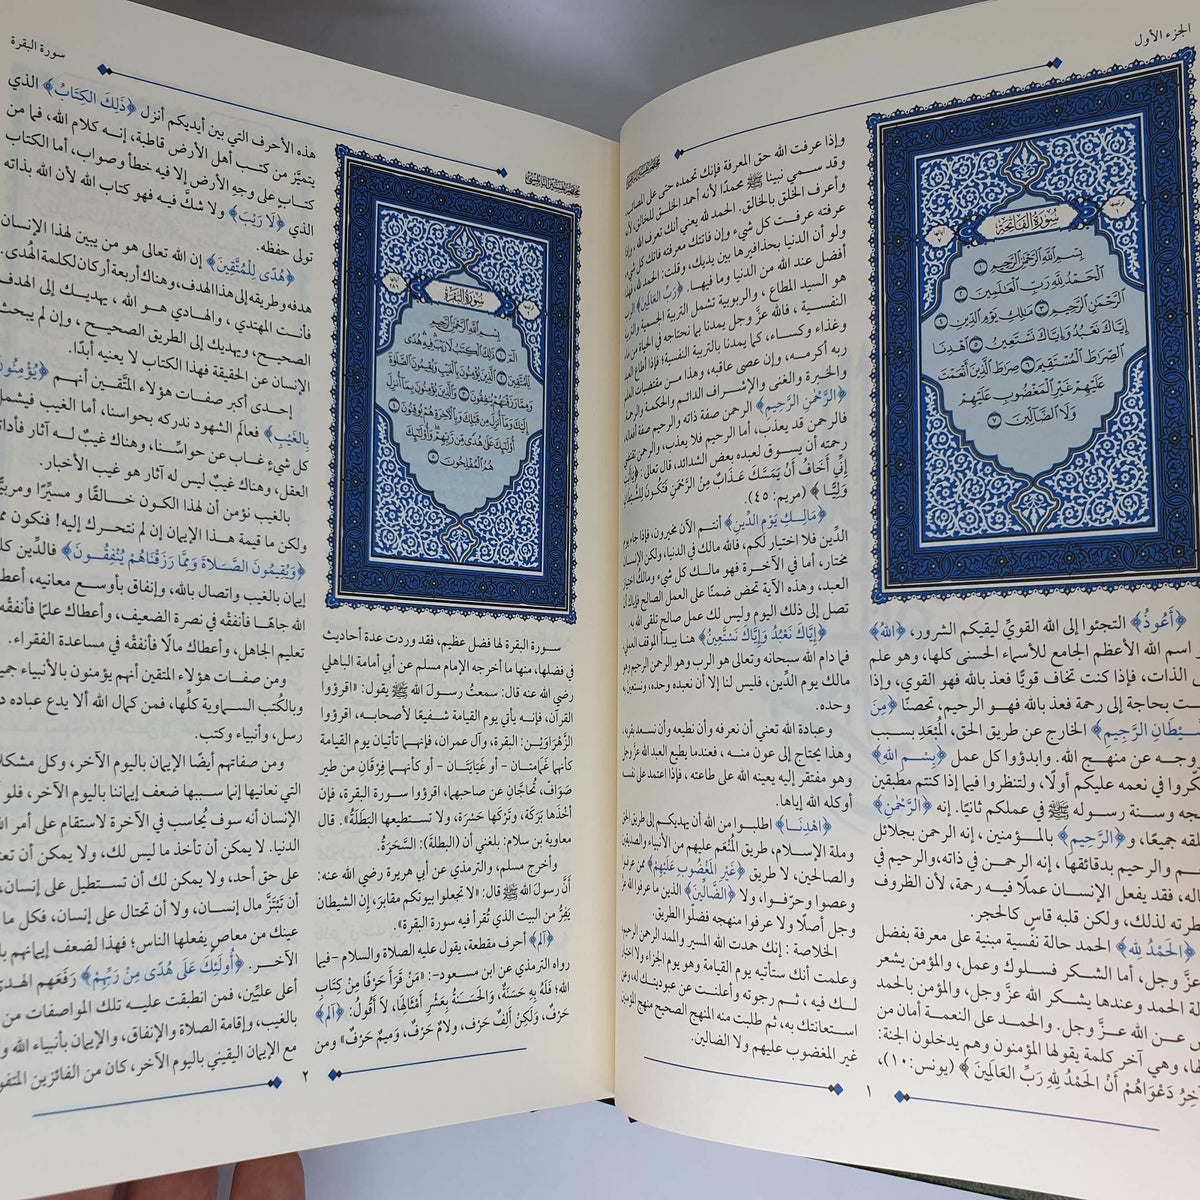 الجزء الأول
سورة الفاتحة
بسم الله الرحمن الرحيم ١
الحمد لله رب العلمين ٢
الرحمن الرحيم ٣ ملك يوم الدين ٤
إياك نعبد وإياك نستعين ٥ اهدنا
الصراط المستقيم ٦ صراط الذين أنعمت
عليهم غير المغضوب عليهم
ولا الضالين ٧
﴿أَعُوذُ﴾ التجئوا إلى الله القويِّ ليقيكم الشرور، ﴿اللهُ﴾
اسم الله الأعظم الجامع للأسماء الحسنى كلها، وهو علم
الذات، فإذا كنت تخاف قويًّا فعذ بالله فهو القوي، وإذا
بحاجة إلى رحمة فعذ بالله فهو الرحيم، تحصنًا ﴿مِنَ
الرَّجِيمِ﴾ الخارج عن طريق الحق، المُبْعَدِ بسبب
عن منهج الله. وابدؤوا كل عمل ﴿بِسْمِ اللهِ﴾
في نعمه عليكم أولًا، ولتنظروا فيما إذا كنتم مطبقين
وسنة رسوله ﷺ في عملكم ثانيًا. إنه ﴿الرَّحْمٰنِ﴾
جميعًا، و ﴿الرَّحِيمِ﴾ بالمؤمنين، إنه الرحمن بجلائل
والرحيم بدقائقها، إنه الرحمن في ذاته، والرحيم في
فقد يفعل الإنسان عملًا فيه رحمة، لأن الظروف
لذلك، ولكن قلبه قاس كالحجر.
﴿الْحَمْدُ لِلهِ﴾ الحمد حالة نفسية مبنية على معرفة بفضل
عزَّ وجل، أما الشكر فسلوك وعمل، والمؤمن يشعر
الحمد وعندها يشكر الله عزَّ وجل، والمؤمن بالحمد
عن الله عزَّ وجل. والحمد على النعمة أمان من
وهي آخر كلمة يقولها المؤمنون وهم يدخلون الجنة:
دَعْوَاهُمْ أَنْ الْحَمْدُ لِلهِ رَبِّ الْعَالَمِينَ﴾ (يونس: ١٠)،
وإذا عرفت الله حق المعرفة فإنك تحمده حتى على المصائب،
وقد سمي نبينا ﷺ محمدًا لأنه أحمد الخلق للخالق،
وأعرف الخلق بالخالق. الحمد لله يعني أنك تعرف الله،
عرفته عرفت كل شيء وإن فاتتك معرفته فاتك كل شيء،
ولو أن الدنيا بحذافيرها بين يديك، وقلت: الحمد لله،
أفضل عند الله من الدنيا وما فيها. ﴿رَبِّ الْعَالَمِينَ﴾
هو السيد المطاع، والربوبية تشمل التربية الجسمية والتربية
النفسية، فالله عزَّ وجل يمدنا بما نحتاجه في الحياة من
وغذاء وكساء، كما يمدنا بالتربية النفسية؛ فإذا أطاع العبد
ربه أكرمه، وإن عصى عاقبه، وهذا من مقتضيات العلم
والخبرة والغنى والإشراف الدائم والحكمة والرحمة
﴿الرَّحْمٰنِ الرَّحِيمِ﴾ الرحمن صفة ذاته والرحيم صفة أفعاله،
فالرحمن قد يعذب، أما الرحيم فلا يعذب، والرحمن تقتضي
رحمته أن يسوق لعبده بعض الشدائد، قال تعالى:
إِنِّي أَخَافُ أَنْ يَمَسَّكَ عَذَابٌ مِنَ الرَّحْمٰنِ فَتَكُونَ لِلشَّيْطَانِ
وَلِيًّا﴾ (مريم: ٤٥).
﴿مَالِكِ يَوْمِ الدِّينِ﴾ أنتم الآن مخيرون، فإذا جاء يوم
الدِّين فلا اختيار لكم، فالله مالك في الدنيا، ولكن الإنسان
مختار، أما في الآخرة فهو مالك كل شيء ومالك اختيار
العبد، وهذه الآية تحض ضمنًا على العمل الصالح فإياك أن
تصل إلى ذلك اليوم وليس لك عمل صالح تلقى الله به.
﴿إِيَّاكَ نَعْبُدُ وَإِيَّاكَ نَسْتَعِينُ﴾ هنا يبدأ الموقف العملي،
فما دام الله سبحانه وتعالى هو الرب وهو الرحمن الرحيم
مالك يوم الدِّين، فليس لنا إلا أن نعبده وحده، ونستعين به
وحده.
وعبادة الله تعني أن نعرفه وأن نطيعه وأن نسعد بقربه،
وهذا يحتاج إلى عون منه، فعندما يطيع العبد الله عزَّ وجل
وهو مفتقر إليه يعينه الله على طاعته، فإذا اعتمد على نفسه
أوكله الله إياها.
﴿اهْدِنَا﴾ اطلبوا من الله أن يهديكم إلى طريق الحق
وملة الإسلام، طريق المُنْعَم عليهم من الأنبياء والصديقين
والصالحين، لا طريق ﴿غَيْرِ الْمَغْضُوبِ عَلَيْهِمْ﴾ ممن عرفوا
وعصوا وحرَّفوا، ولا ﴿الضَّالِّينَ﴾ الذين ما عرفوا الله عزَّ
وجل أصلًا ولا عرفوا منهجه فضلُّوا الطريق.
الخلاصة: إنك حمدت الله المسير والممد الرحمن الرحيم
وعلمت أنك ستأتيه يوم القيامة وهو يوم الجزاء ولا اختيار
لك فيه، ثم رجوته وأعلنت عن عبوديتك له، وعن
استعانتك به، ثم طلبت منه المنهج الصحيح منهج المؤمنين
غير المغضوب عليهم ولا الضالين.
١
سورة البقرة
سورة البقرة
بسم الله الرحمن الرحيم
الم ١ ذلك الكتاب لا ريب فيه هدى
للمتقين ٢ الذين يؤمنون بالغيب ويقيمون الصلاة
ومما رزقناهم ينفقون ٣ والذين يؤمنون بما أنزل
إليك وما أنزل من قبلك وبالآخرة هم يوقنون ٤
أولئك على هدى من ربهم وأولئك
هم المفلحون ٥
سورة البقرة لها فضل عظيم، فقد وردت عدة أحاديث
في فضلها، منها ما أخرجه الإمام مسلم عن أبي أمامة الباهلي
رضي الله عنه قال: سمعتُ رسولَ الله ﷺ يقول: «اقرؤوا
القرآن، فإنه يأتي يوم القيامة شفيعًا لأصحابه، اقرؤوا
الزَّهْرَاوَيْن: البقرة، وآل عمران، فإنهما تأتيان يوم القيامة
كأنهما غَمَامتان - أو غَيَايَتَان - أو كأنهما فِرْقَان من طير
صَوَافّ، تُحَاجَّان عن صاحبهما، اقرؤوا سورة البقرة، فإن
أخْذَها بَرَكَة، وتَرْكَها حَسْرَة، ولا تستطيعها البَطَلَةُ». قال
معاوية بن سلام: بلغني أن (البطلة): السَّحَرَةُ.
وأخرج مسلم، والترمذي عن أبي هريرة رضي الله عنه:
أنَّ رسولَ الله ﷺ قال: «لا تجعلوا بيوتكم مقابرَ، إن الشيطان
يَفِرُّ من البيت الذي تُقرأ فيه سورة البقرة».
﴿آلم﴾ أحرف مقطعة، يقول عليه الصلاة والسلام - فيما
رواه الترمذي عن ابن مسعود-: «مَنْ قَرَأَ حَرْفًا مِنْ كِتَابِ
اللهِ؛ فَلَهُ بِهِ حَسَنَةٌ، وَالْحَسَنَةُ بِعَشْرِ أَمْثَالِهَا، لَا أَقُولُ: ﴿آلم﴾
حَرْفٌ، وَلَكِنْ أَلِفٌ حَرْف، ولامٌ حَرْفٌ، وَمِيمٌ حَرْفٌ» ومن
هذه الأحرف التي بين أيديكم أنزل ﴿ذَلِكَ الكِتَابُ﴾ الذي
يتميَّز من كتب أهل الأرض قاطبة، إنه كلام الله، فما من
كتاب على وجه الأرض إلا فيه خطأ وصواب، أما الكتاب
الذي ﴿لَا رَيْبَ﴾ ولا شكَّ فيه فهو كتاب الله لأن الله بذاته
تولى حفظه.
﴿هُدًى لِلْمُتَّقِينَ﴾ إن الله تعالى هو من يبين لهذا الإنسان
هدفه وطريقه إلى هذا الهدف، وهناك أربعة أركان لكلمة الهُدى.
فأنت المهتدي، والهادي هو الله، يهديك إلى الهدف
الصحيح، ويهديك إلى الطريق الصحيح، وإن لم يبحث
الإنسان عن الحقيقة فهذا الكتاب لا يعنيه أبدًا.
إحدى أكبر صفات هؤلاء المتَّقين أنهم ﴿يُؤْمِنُونَ
بِالْغَيْبِ﴾ فعالم الشهود ندركه بحواسنا، أما الغيب فيشمل
كل شيءٍ غاب عن حواسِّنا، وهناك غيبٌ له آثار فأداة
العقل، وهناك غيبٌ ليس له آثار هو غيب الأخبار.
بالغيب نؤمن أن لهذا الكون خالقًا و مسيِّرًا ومربيًّا
ولكن ما قيمة هذا الإيمان إن لم نتحرك إليه! فنكون
﴿وَيُقِيمُونَ الصَّلَاةَ وَمِمَّا رَزَقْنَاهُمْ يُنْفِقُونَ﴾ فالدِّين
إيمان بالغيب واتصال بالله، وإنفاق بأوسع معانيه، أعطاك
الله جاهًا فأنفقْه في نصرة الضعيف، وأعطاك علمًا فأنفقْه
تعليم الجاهل، وأعطاك مالًا فأنفقْه في مساعدة الفقراء.
ومن صفات هؤلاء المتقين أنهم يؤمنون بالأنبياء
وبالكُتب السماوية كلِّها، فمن كمال الله ألا يدع عباده
رسل، وأنبياء وكتب.
ومن صفاتهم أيضًا الإيمان باليوم الآخر، وكل
التي نعانيها إنما سببها ضعف إيماننا باليوم الآخر، فلو
الإنسان أنه سوف يُحاسب في الآخرة لاستقام على أمر الله
الدنيا. لا يمكن أن تأخذ ما ليس لك، ولا يمكن أن
على حق أحد، ولا يمكن لك أن تستطيل على إنسان،
أن تَبْتَزَّ مال إنسان، ولا أن تحتال على إنسان، فكل ما
عينك من معاصٍ يفعلها الناس؛ فهذا لضعف إيمانهم
الآخر. ﴿أُولَئِكَ عَلَى هُدًى مِنْ رَبِّهِمْ﴾ رَفَعَهم
أعلى عليِّين، فمن انطبقت عليه تلك المواصفات من
بالغيب، وإقامة الصلاة والإنفاق، والإيمان بأنبياء الله
مع الإيمان اليقيني باليوم الآخر، كان من الفائزين
٢